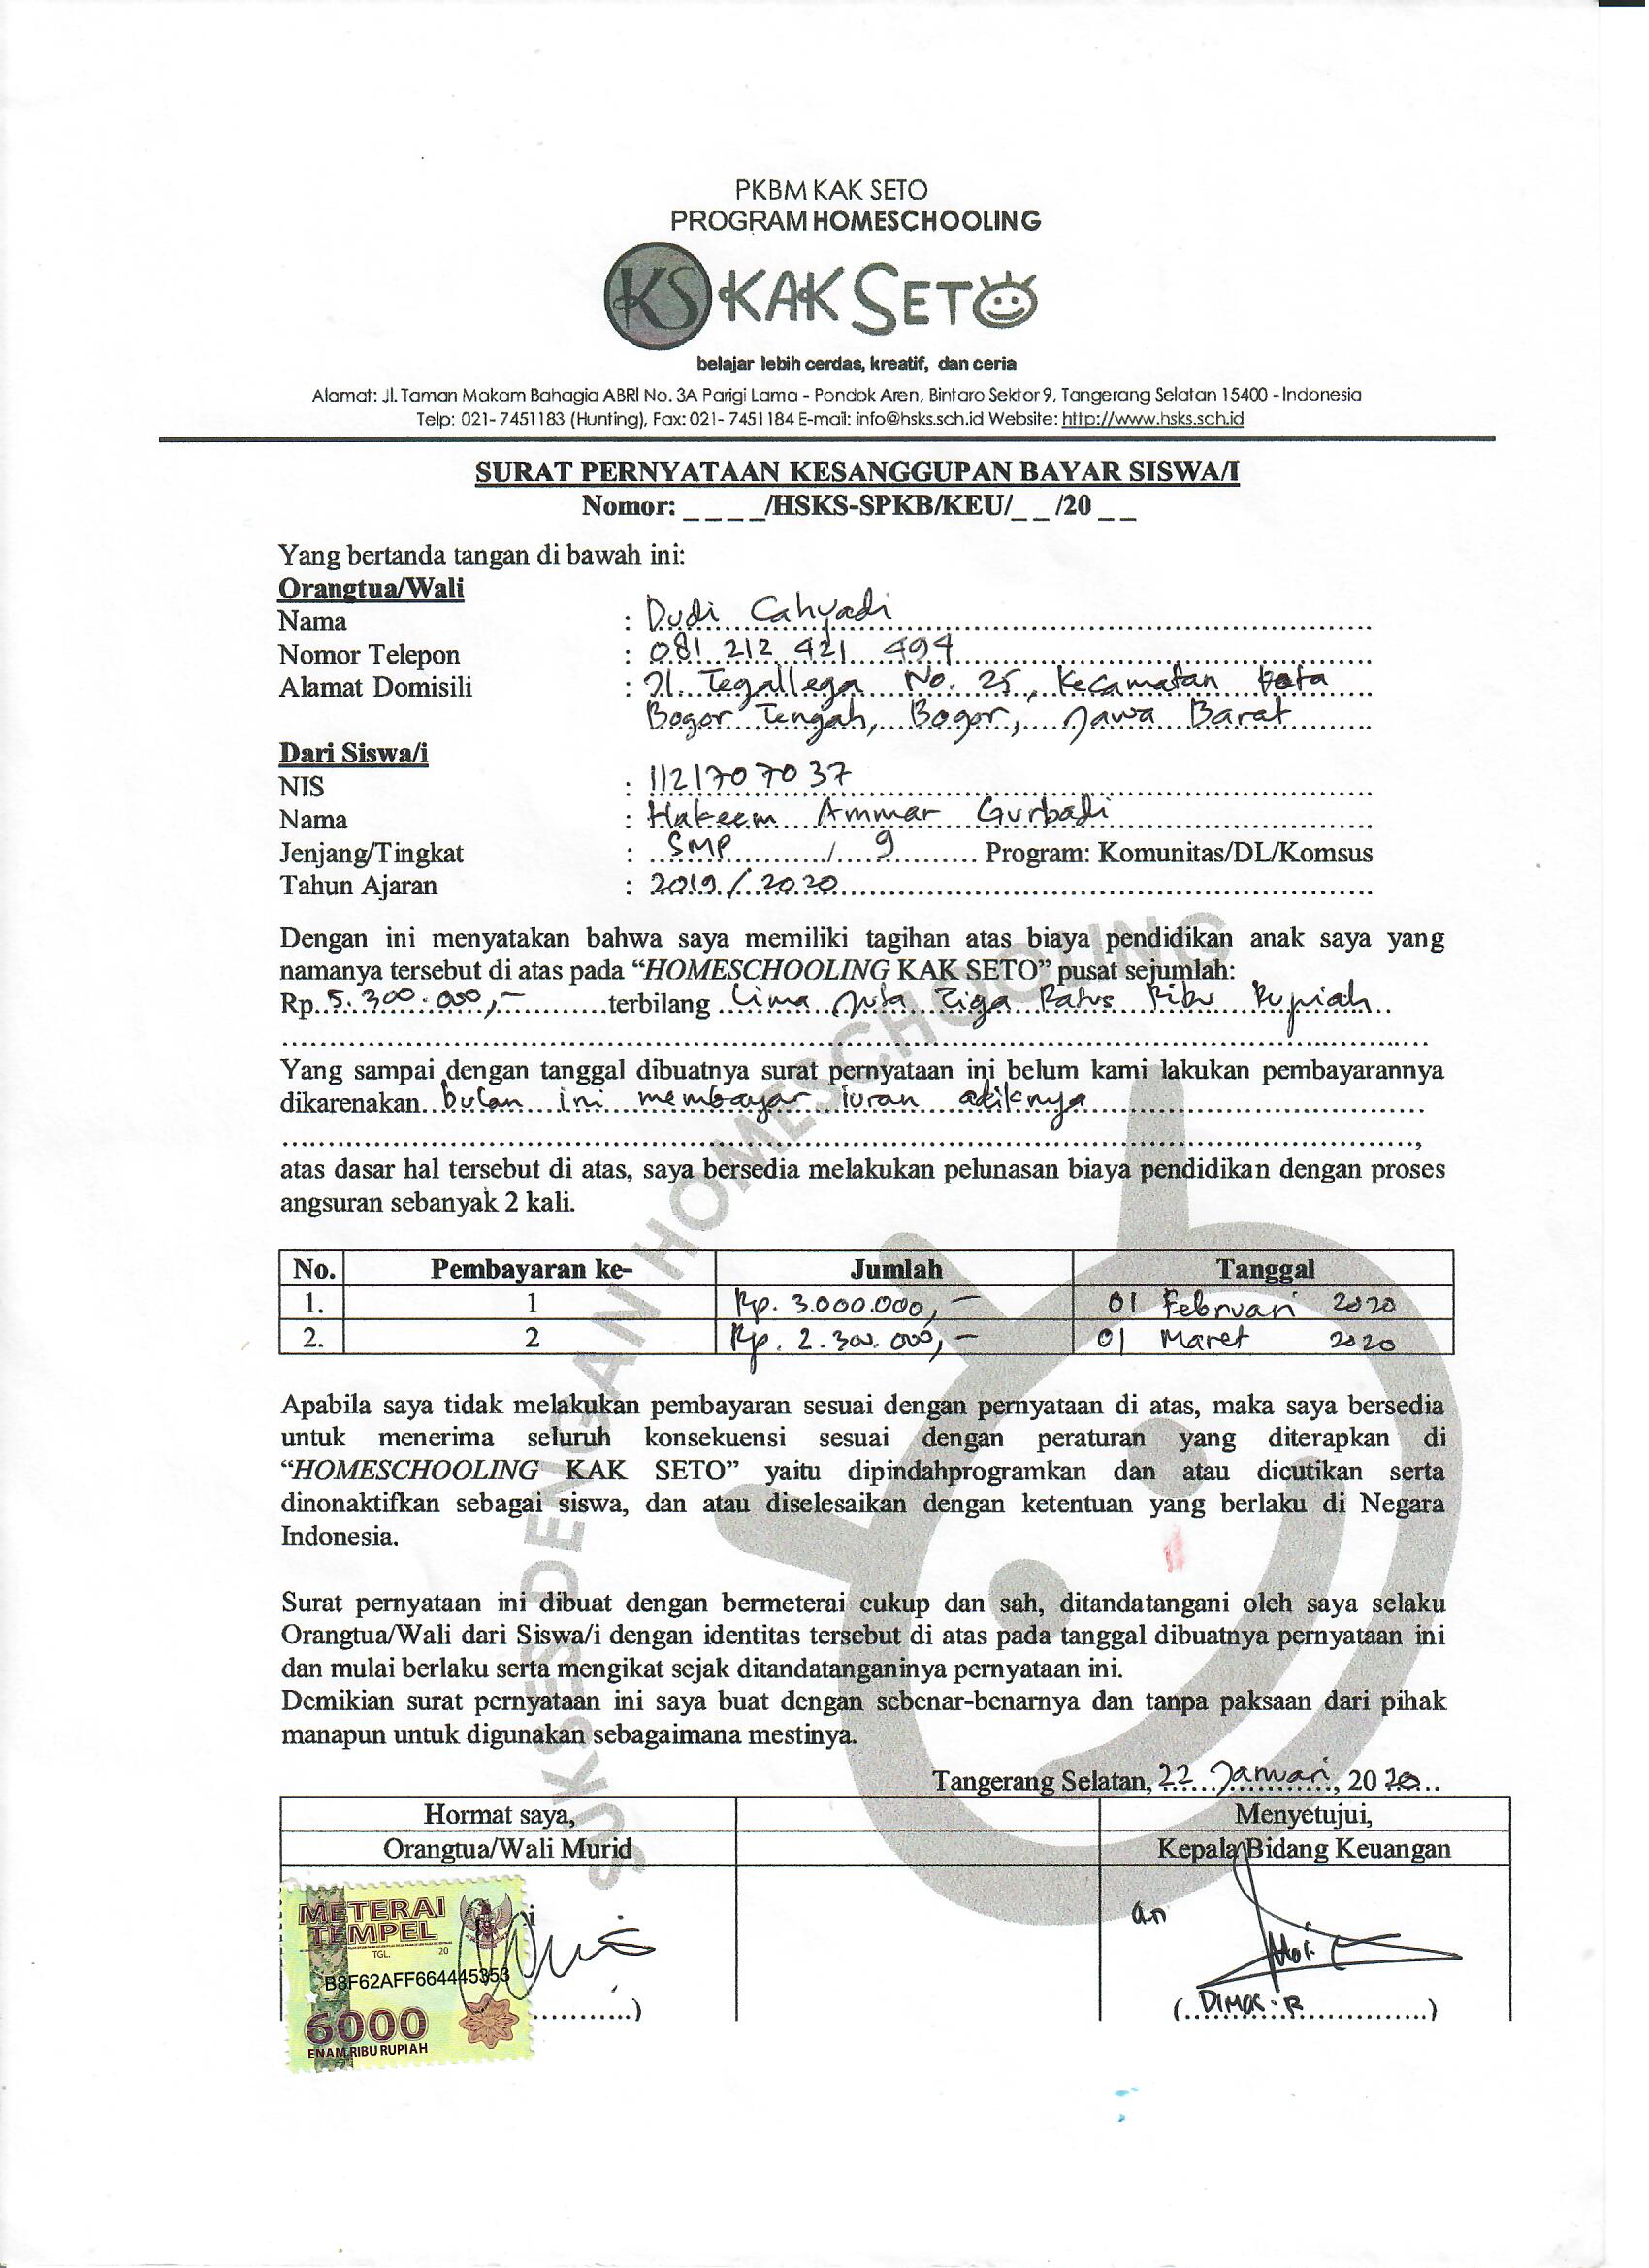 PKBM KAK SETO
PROGRAM HOMESCHOOLING
KS KAK SETO
belajar lebih cerdas, kreatif, dan ceria
Alamat: Jl. Taman Makam Bahagia ABRI No. 3A Parigi Lama - Pondok Aren, Bintaro Sektor 9, Tangerang Selatan 15400 - Indonesia
Telp: 021- 7451183 (Hunting), Fax: 021- 7451184 E-mail: info@hsks.sch.id Website: http://www.hsks.sch.id
SURAT PERNYATAAN KESANGGUPAN BAYAR SISWA/I
Nomor: _ _ _ _/HSKS-SPKB/KEU/_ _ /20 _ _
Yang bertanda tangan di bawah ini:
Orangtua/Wali
Nama : Dudi Cahyadi
Nomor Telepon : 081 212 421 494
Alamat Domisili : Jl. Tegallega No. 25, Kecamatan Kota
Bogor Tengah, Bogor, Jawa Barat
Dari Siswa/i
NIS : 1121707037
Nama : Hakeem Ammar Gurbadi
Jenjang/Tingkat : SMP / 9 Program: Komunitas/DL/Komsus
Tahun Ajaran : 2019 / 2020
Dengan ini menyatakan bahwa saya memiliki tagihan atas biaya pendidikan anak saya yang
namanya tersebut di atas pada “HOMESCHOOLING KAK SETO” pusat sejumlah:
Rp. 5.300.000,- terbilang Lima Juta Tiga Ratus Ribu Rupiah
Yang sampai dengan tanggal dibuatnya surat pernyataan ini belum kami lakukan pembayarannya
dikarenakan bulan ini membayar iuran adiknya
,
atas dasar hal tersebut di atas, saya bersedia melakukan pelunasan biaya pendidikan dengan proses
angsuran sebanyak 2 kali.
No. Pembayaran ke- Jumlah Tanggal
1. 1 Rp. 3.000.000,- 01 Februari 2020
2. 2 Rp. 2.300.000,- 01 Maret 2020
Apabila saya tidak melakukan pembayaran sesuai dengan pernyataan di atas, maka saya bersedia
untuk menerima seluruh konsekuensi sesuai dengan peraturan yang diterapkan di
“HOMESCHOOLING KAK SETO” yaitu dipindahprogramkan dan atau dicutikan serta
dinonaktifkan sebagai siswa, dan atau diselesaikan dengan ketentuan yang berlaku di Negara
Indonesia.
Surat pernyataan ini dibuat dengan bermeterai cukup dan sah, ditandatangani oleh saya selaku
Orangtua/Wali dari Siswa/i dengan identitas tersebut di atas pada tanggal dibuatnya pernyataan ini
dan mulai berlaku serta mengikat sejak ditandatanganinya pernyataan ini.
Demikian surat pernyataan ini saya buat dengan sebenar-benarnya dan tanpa paksaan dari pihak
manapun untuk digunakan sebagaimana mestinya.
Tangerang Selatan, 22 Januari, 2020
Hormat saya, Menyetujui,
Orangtua/Wali Murid Kepala Bidang Keuangan
an
METERAI
TEMPEL
TGL. 20
B8F62AFF664445353
6000
ENAM RIBU RUPIAH
(Dimas. R)
SUKSES DENGAN HOMESCHOOLING